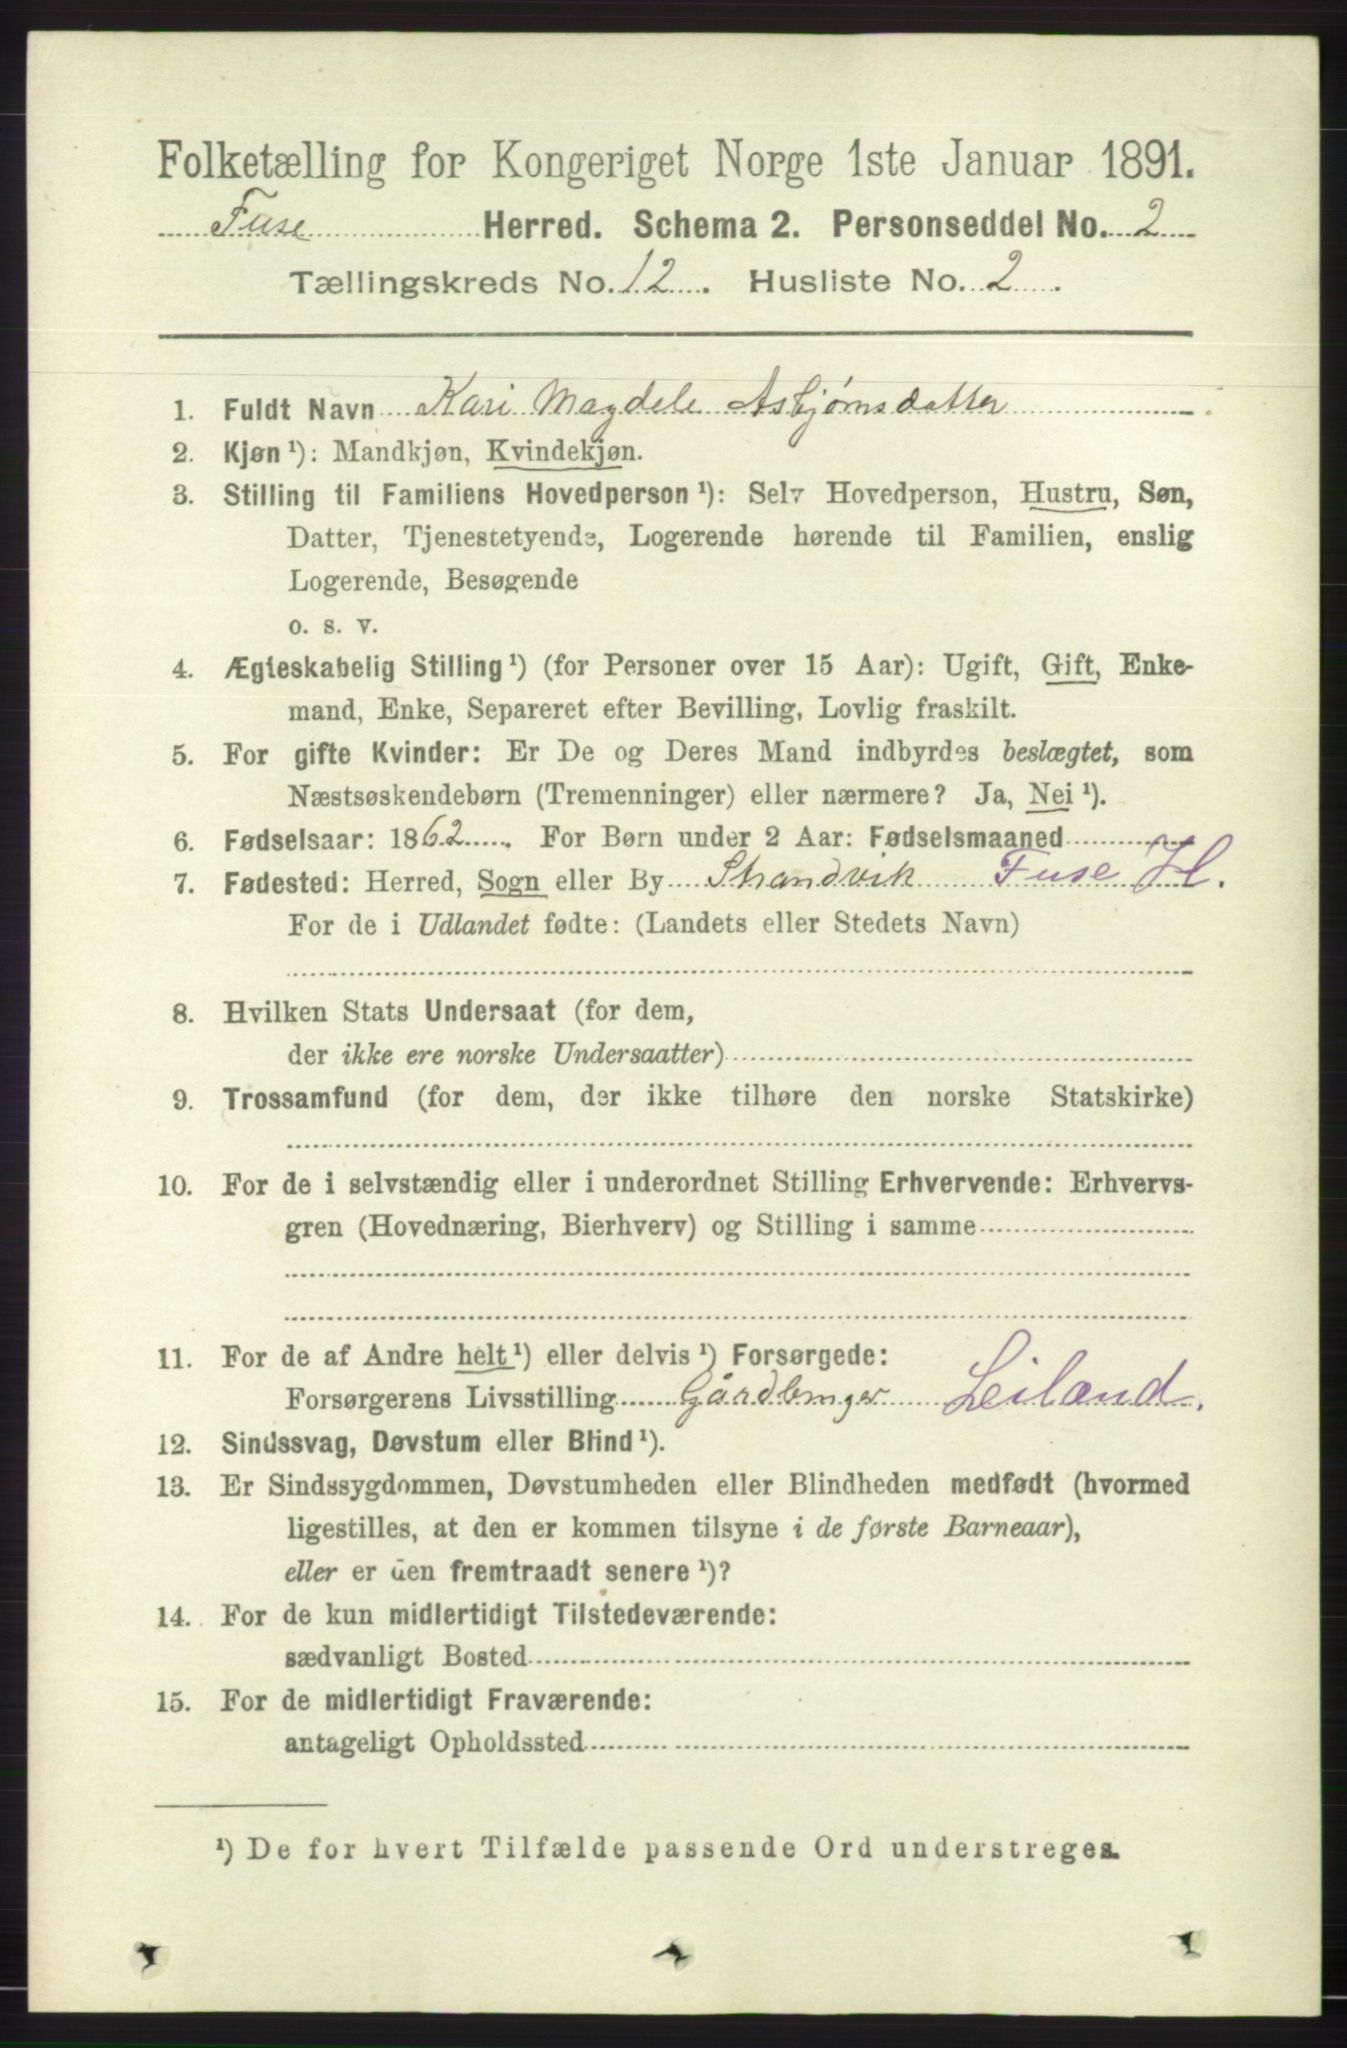 Folketælling for Kongeriget Norge 1ste Januar 1891.
Fuse Herred. Schema 2. Personseddel No. 2
Tællingskreds No. 12. Husliste No. 2.
1. Fuldt Navn Kari Magdele Asbjørnsdatter
2. Kjøn ¹): Mandkjøn, Kvindekjøn.
3. Stilling til Familiens Hovedperson ¹): Selv Hovedperson, Hustru, Søn,
Datter, Tjenestetyende, Logerende hørende til Familien, enslig
Logerende, Besøgende
o. s. v.
4. Ægteskabelig Stilling ¹) (for Personer over 15 Aar): Ugift, Gift, Enke-
mand, Enke, Separeret efter Bevilling, Lovlig fraskilt.
5. For gifte Kvinder: Er De og Deres Mand indbyrdes beslægtet, som
Næstsøskendebørn (Tremenninger) eller nærmere? Ja, Nei ¹).
6. Fødselsaar: 1862. For Børn under 2 Aar: Fødselsmaaned
7. Fødested: Herred, Sogn eller By Strandvik Fuse H.
For de i Udlandet fødte: (Landets eller Stedets Navn)
8. Hvilken Stats Undersaat (for dem,
der ikke ere norske Undersaatter)
9. Trossamfund (for dem, der ikke tilhøre den norske Statskirke)
10. For de i selvstændig eller i underordnet Stilling Erhvervende: Erhvervs-
gren (Hovednæring, Bierhverv) og Stilling i samme
11. For de af Andre helt ¹) eller delvis ¹) Forsørgede:
Forsørgerens Livsstilling Gårdbruger Leiland.
12. Sindssvag, Døvstum eller Blind ¹).
13. Er Sindssygdommen, Døvstumheden eller Blindheden medfødt (hvormed
ligestilles, at den er kommen tilsyne i de første Barneaar),
eller er den fremtraadt senere ¹)?
14. For de kun midlertidigt Tilstedeværende:
sædvanligt Bosted
15. For de midlertidigt Fraværende:
antageligt Opholdssted
¹) De for hvert Tilfælde passende Ord understreges.